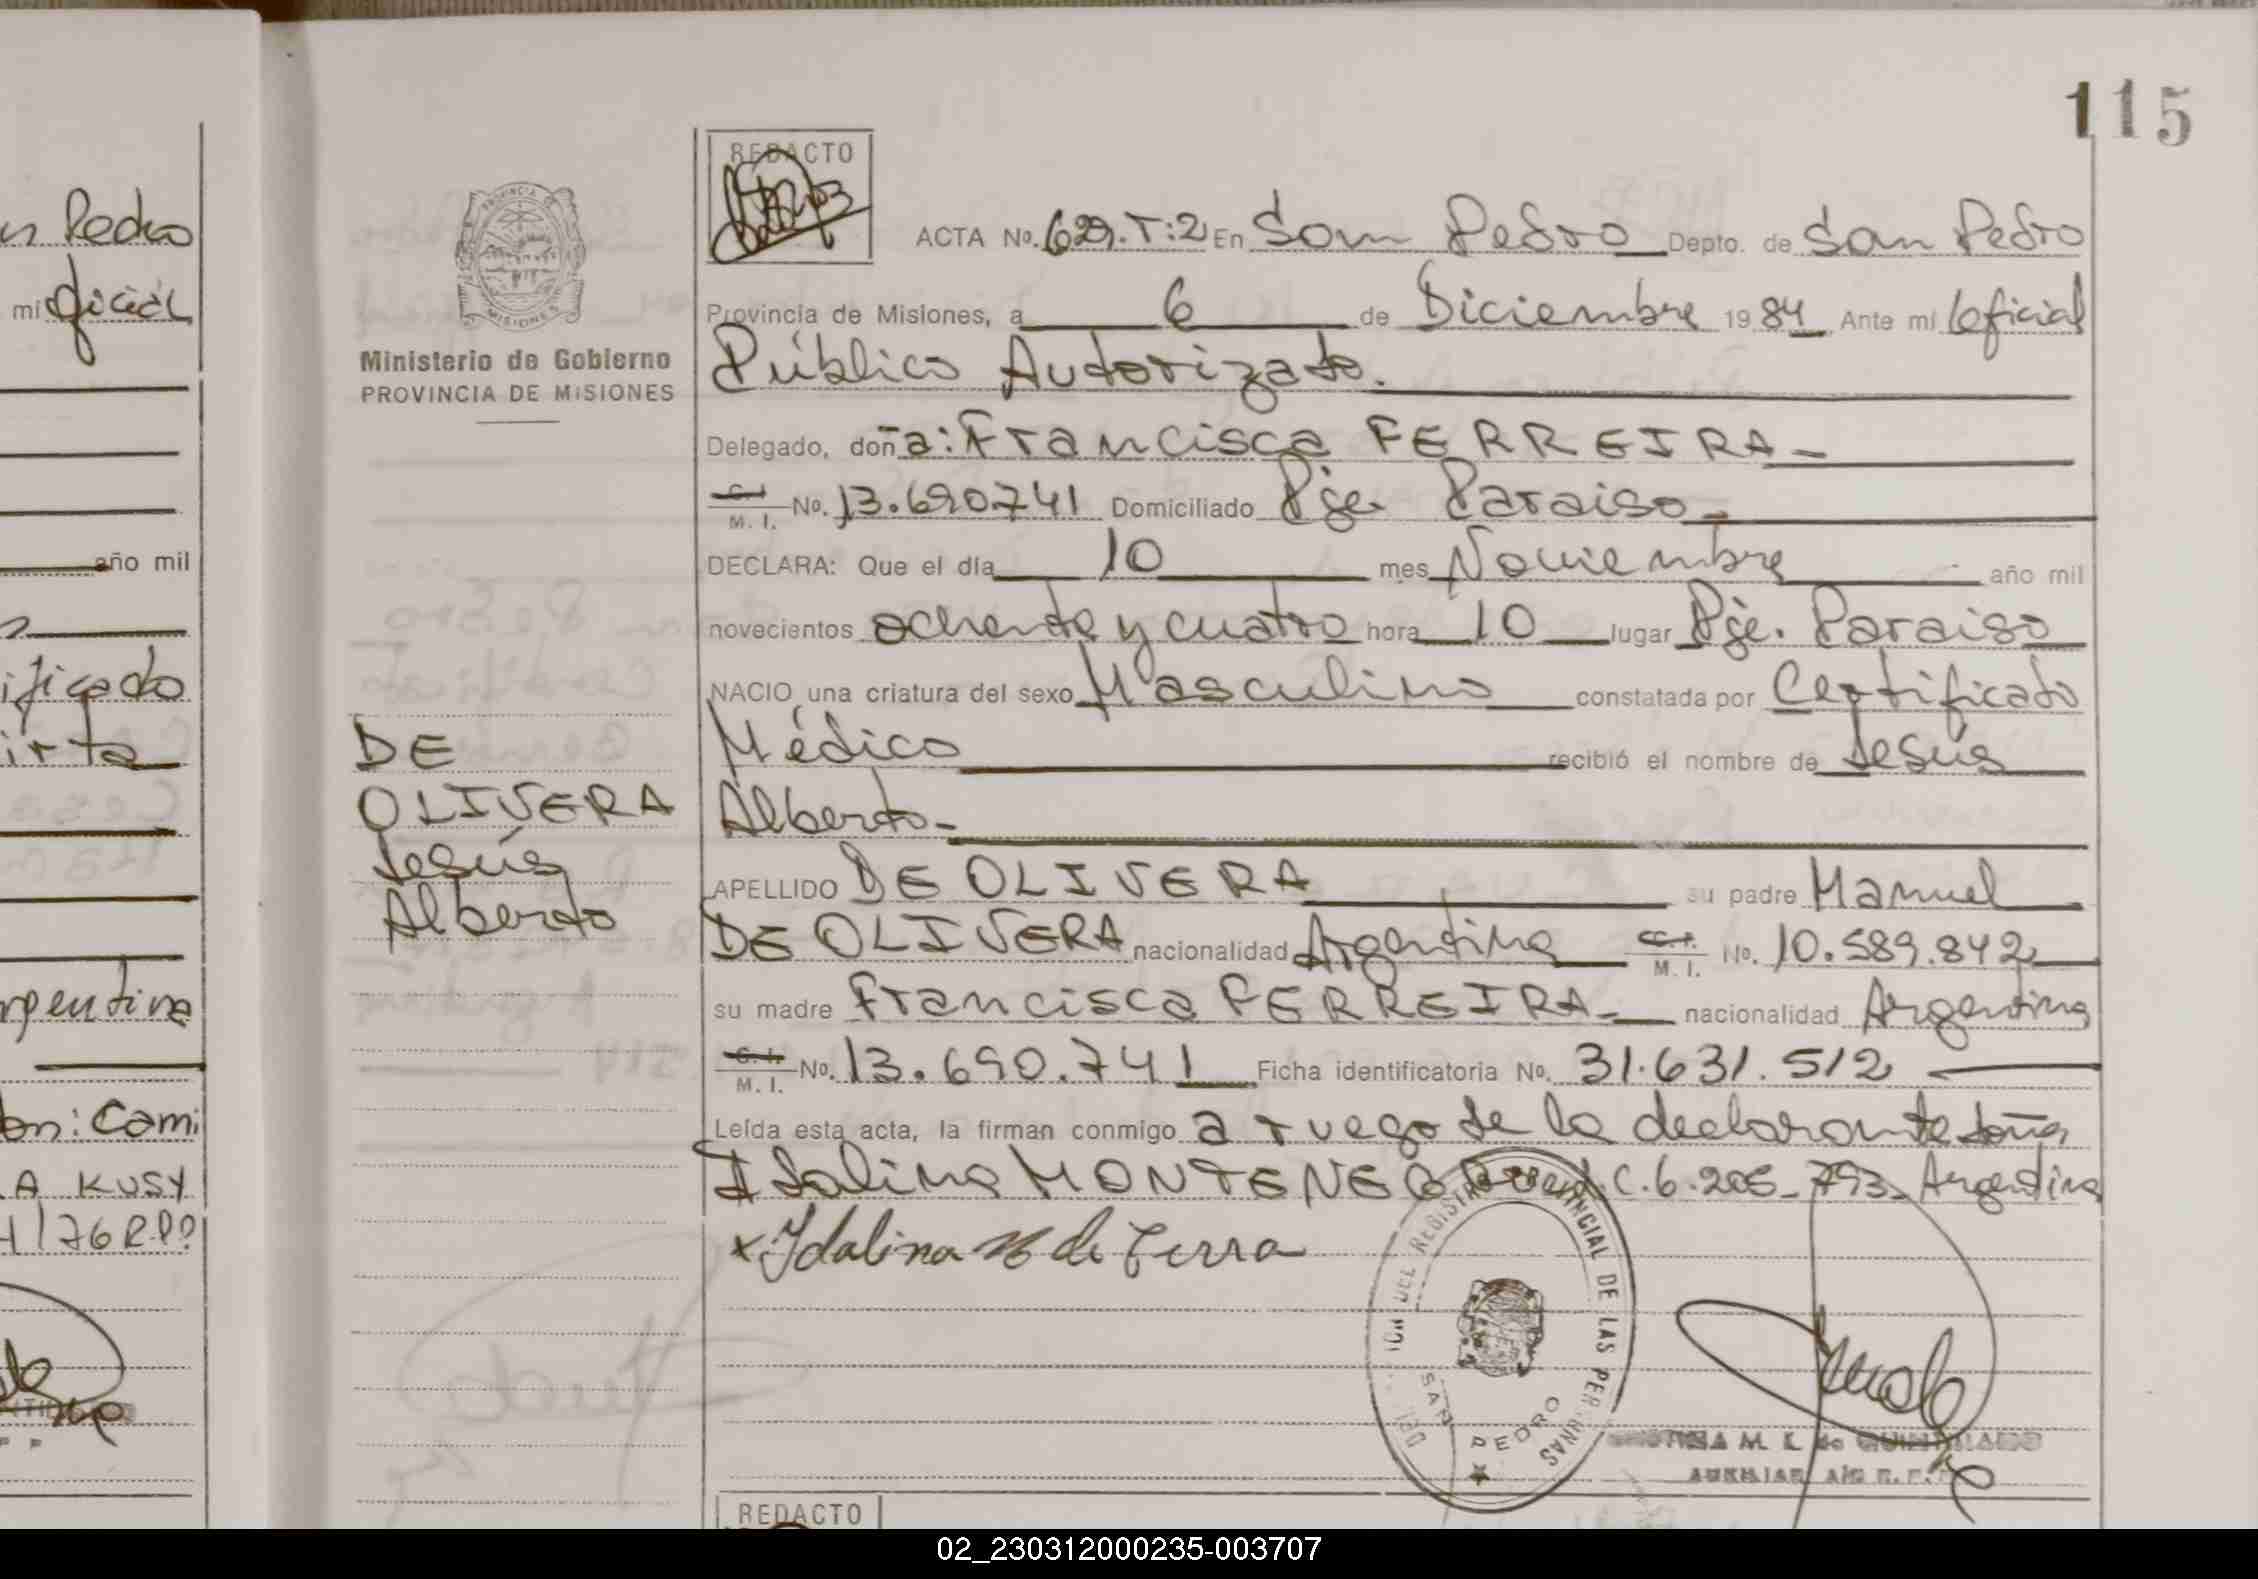 115
n Pedro
mi oficial
año mil
ificado
irta
rgentina
on: Cami
A KUSY
4/76 R.P.
PROVINCIA DE
MISIONES
Ministerio de Gobierno
PROVINCIA DE MISIONES
DE
OLIVERA
Jesús
Alberto
REDACTO
ACTA No. 629. T:2 En San Pedro Depto. de San Pedro
Provincia de Misiones, a 6 de Diciembre 1984 Ante mi Oficial
Público Autorizado.
Delegado, doña: Francisca FERREIRA-
C. I. M. I. No. 13.690741 Domiciliado Pje. Paraiso-
DECLARA: Que el día 10 mes Noviembre año mil
novecientos ochenta y cuatro hora 10 lugar Pje. Paraiso
NACIO una criatura del sexo Masculino constatada por Certificado
Médico recibió el nombre de Jesús
Alberto-
APELLIDO DE OLIVERA su padre Manuel
DE OLIVERA nacionalidad Argentina C. I. M. I. No. 10.589.842
su madre Francisca FERREIRA- nacionalidad Argentina
C. I. M. I. No. 13.690.741 Ficha identificatoria No. 31.631.512
Leída esta acta, la firman conmigo a ruego de la declarante doña
Idalina MONTENEGRO C.6.205-793- Argentina
x Idalina M de Ferra
DEL REGISTRO PROVINCIAL DE LAS PERSONAS
SAN PEDRO
M. L. de
AUXILIAR
REDACTO
02_230312000235-003707